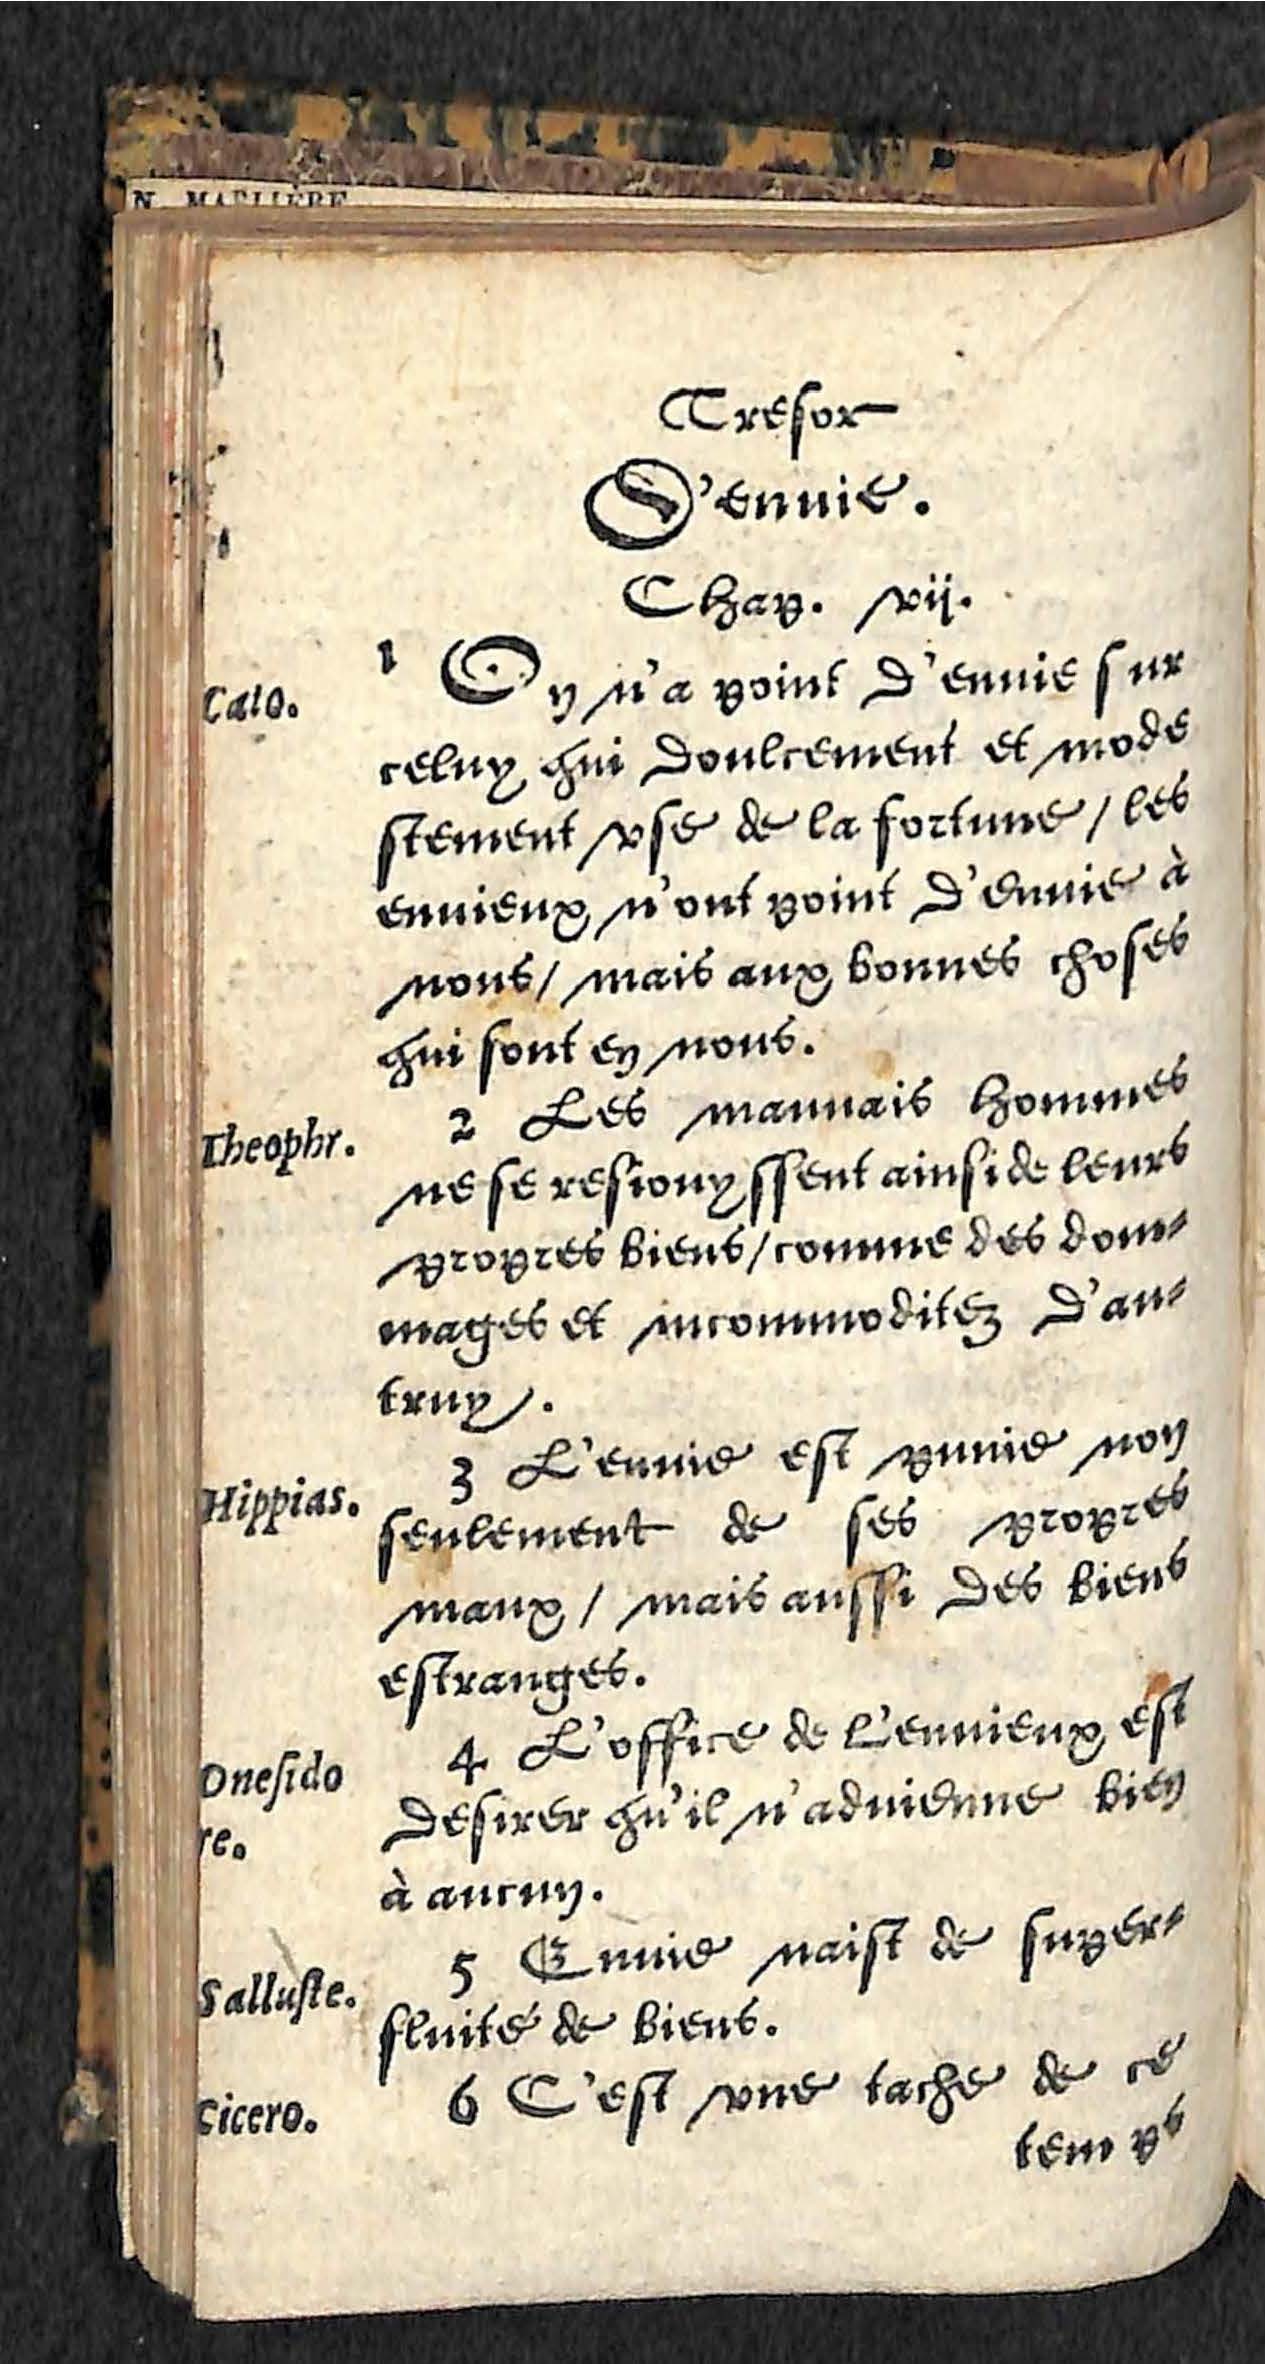 Tresor
D'enuie.
Chap. vij.
Cato.
1 On n'a point d'enuie sur
celuy qui doulcement et mode
stement vse de la fortune / les
enuieux n'ont point d'enuie à
nous / mais aux bonnes choses
qui sont en nous.
Theophr.
2 Les mauuais hommes
ne se resiouyssent ainsi de leurs
propres biens / comme des dom-
mages et incommoditez d'au-
truy.
Hippias.
3 L'enuie est punie non
seulement de ses propres
maux / mais aussi des biens
estranges.
Onesido
re.
4 L'office de l'enuieux est
desirer qu'il n'aduienne bien
à aucun.
Salluste.
5 Enuie naist de super-
fluité de biens.
Cicero.
6 C'est vne tache de ce
temps